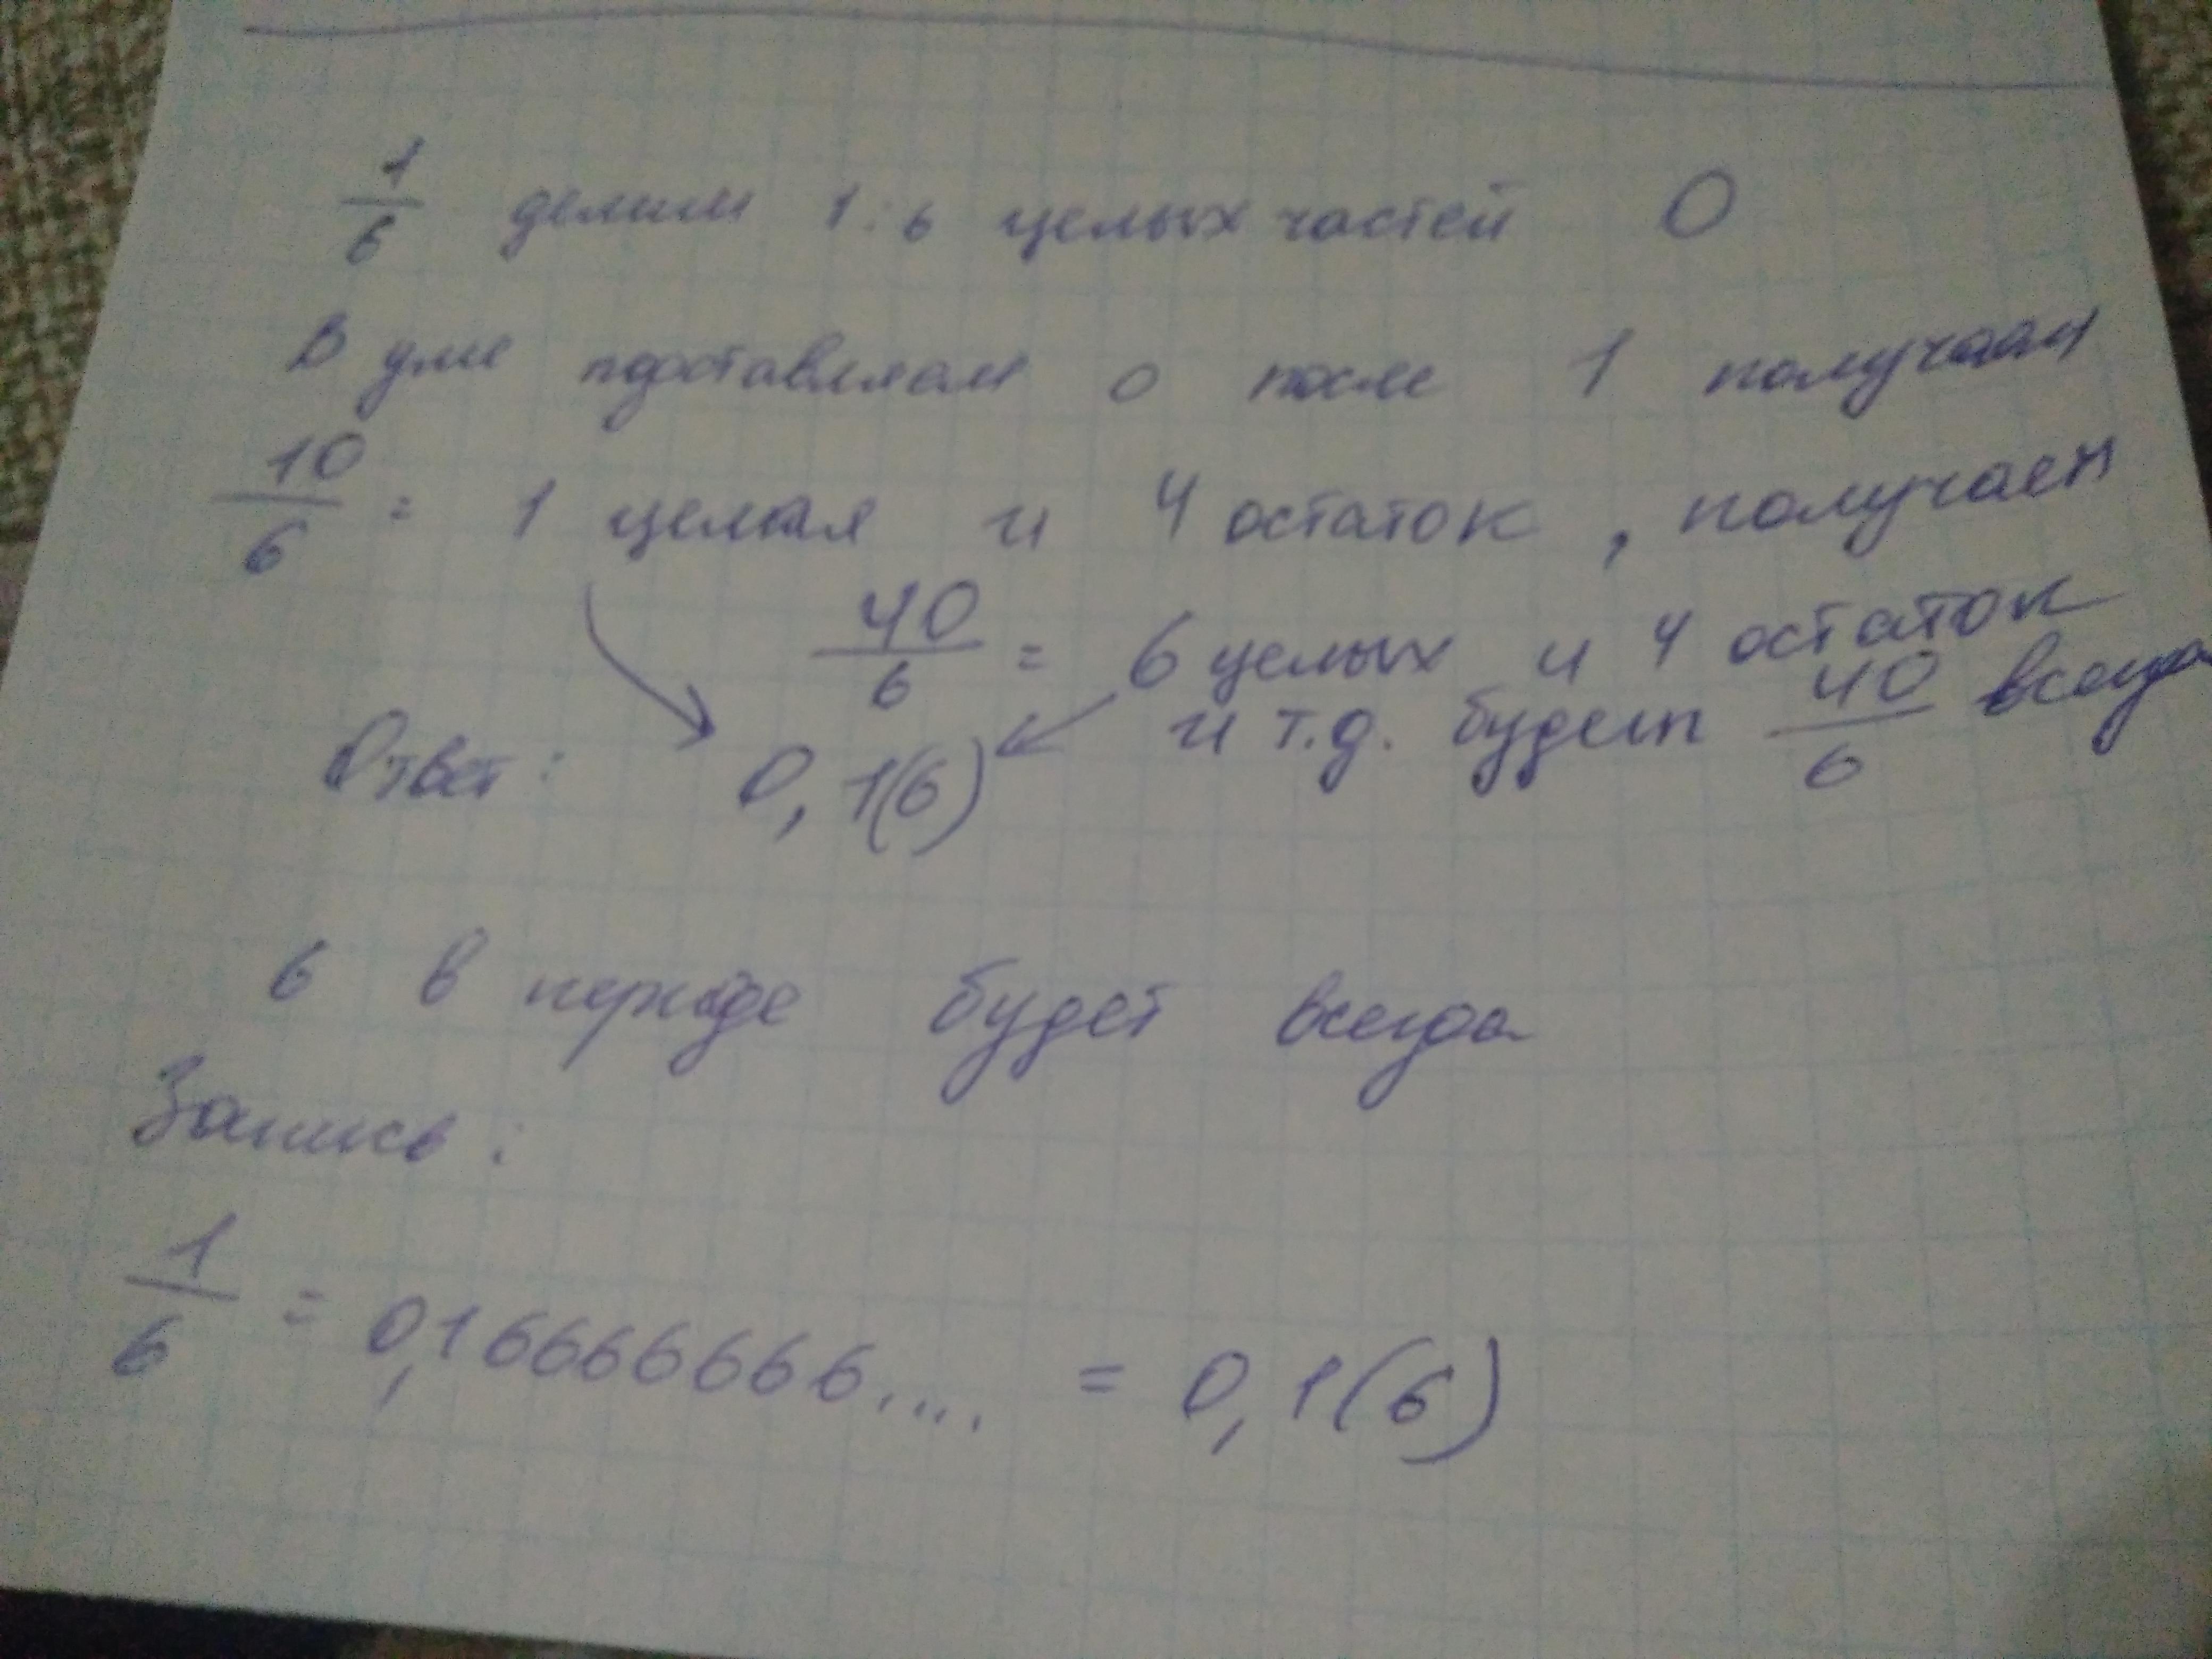 1/6 делим 1:6 целых частей 0
В уме подставляем 0 после 1 получаем
10/6 = 1 целая и 4 остаток, получаем
40/6 = 6 целых и 4 остаток
и т.д. будет 40/6 всегда
Ответ: 0,1(6)
6 в периоде будет всегда
Запись:
1/6 = 0,16666666.... = 0,1(6)